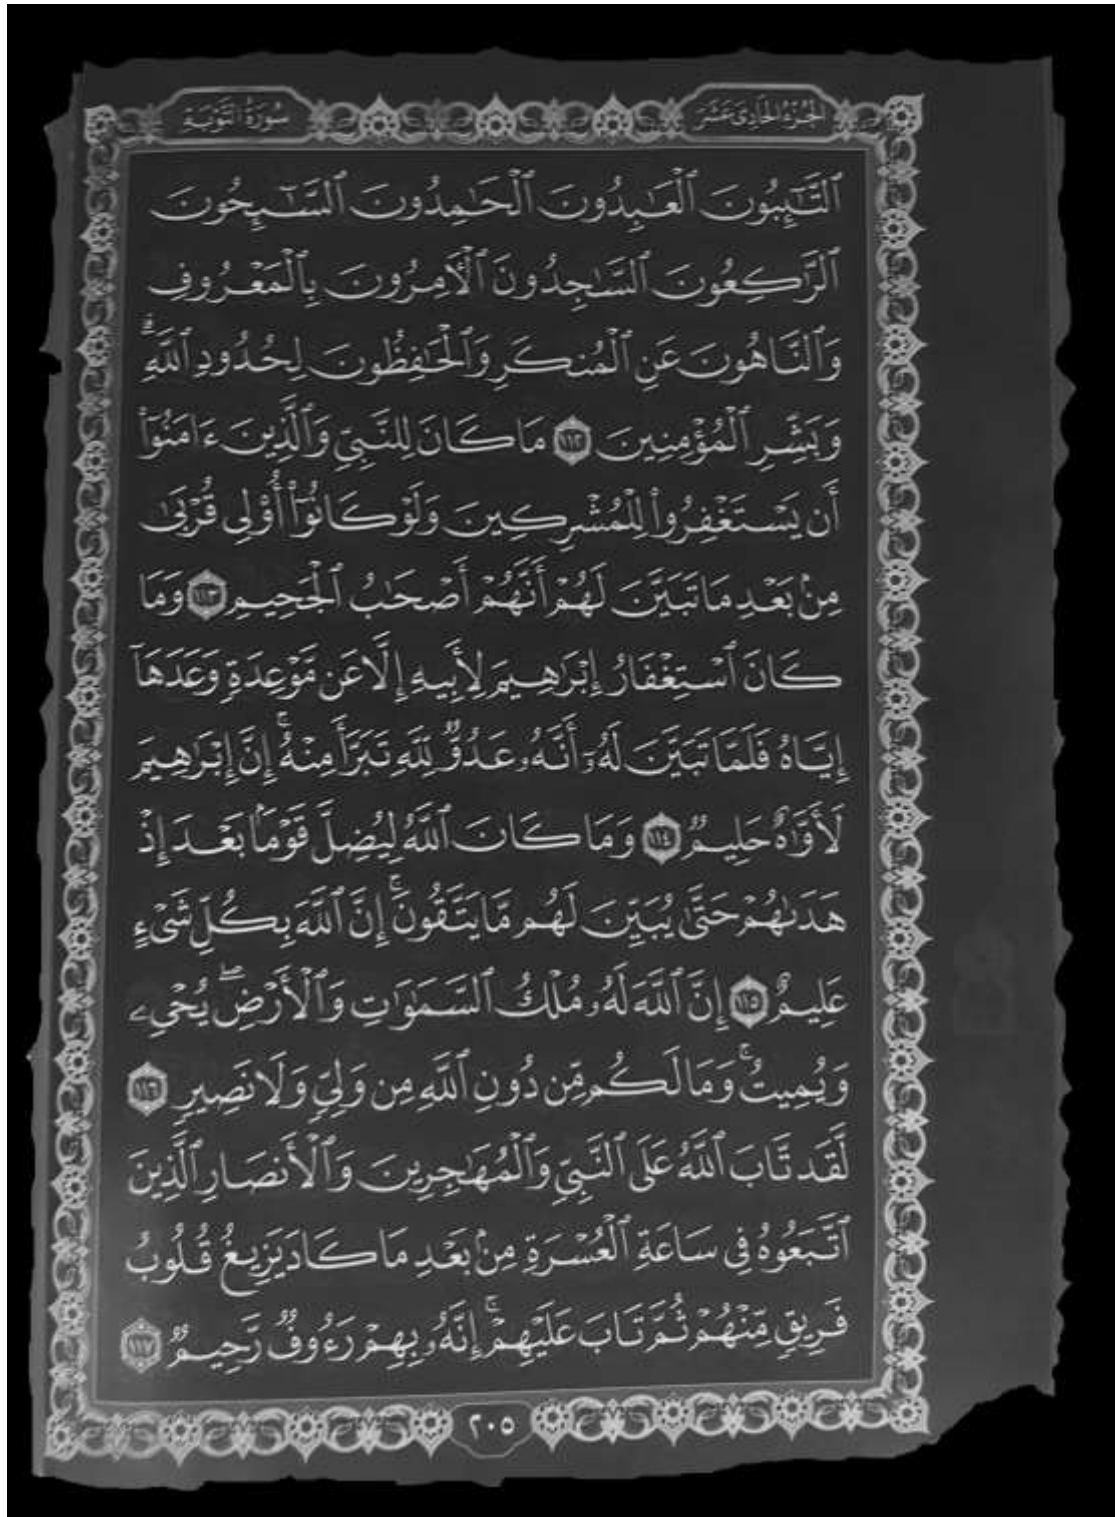 الجُزْءُ الحَادِي عَشَر
سُورَةُ التَّوْبَةِ
ٱلتَّٰٓئِبُونَ ٱلْعَٰبِدُونَ ٱلْحَٰمِدُونَ ٱلسَّٰٓئِحُونَ
ٱلرَّٰكِعُونَ ٱلسَّٰجِدُونَ ٱلْءَامِرُونَ بِٱلْمَعْرُوفِ
وَٱلنَّاهُونَ عَنِ ٱلْمُنكَرِ وَٱلْحَٰفِظُونَ لِحُدُودِ ٱللَّهِۗ
وَبَشِّرِ ٱلْمُؤْمِنِينَ ١١٢ مَا كَانَ لِلنَّبِيِّ وَٱلَّذِينَ ءَامَنُوٓا۟
أَن يَسْتَغْفِرُوا۟ لِلْمُشْرِكِينَ وَلَوْ كَانُوٓا۟ أُو۟لِى قُرْبَىٰ
مِنۢ بَعْدِ مَا تَبَيَّنَ لَهُمْ أَنَّهُمْ أَصْحَٰبُ ٱلْجَحِيمِ ١١٣ وَمَا
كَانَ ٱسْتِغْفَارُ إِبْرَٰهِيمَ لِأَبِيهِ إِلَّا عَن مَّوْعِدَةٍ وَعَدَهَآ
إِيَّاهُ فَلَمَّا تَبَيَّنَ لَهُۥٓ أَنَّهُۥ عَدُوٌّ لِّلَّهِ تَبَرَّأَ مِنْهُۚ إِنَّ إِبْرَٰهِيمَ
لَأَوَّٰهٌ حَلِيمٌ ١١٤ وَمَا كَانَ ٱللَّهُ لِيُضِلَّ قَوْمًۢا بَعْدَ إِذْ
هَدَىٰهُمْ حَتَّىٰ يُبَيِّنَ لَهُم مَّا يَتَّقُونَۚ إِنَّ ٱللَّهَ بِكُلِّ شَىْءٍ
عَلِيمٌ ١١٥ إِنَّ ٱللَّهَ لَهُۥ مُلْكُ ٱلسَّمَٰوَٰتِ وَٱلْأَرْضِۖ يُحْىِۦ
وَيُمِيتُۚ وَمَا لَكُم مِّن دُونِ ٱللَّهِ مِن وَلِىٍّ وَلَا نَصِيرٍ ١١٦
لَّقَد تَّابَ ٱللَّهُ عَلَى ٱلنَّبِىِّ وَٱلْمُهَٰجِرِينَ وَٱلْأَنصَارِ ٱلَّذِينَ
ٱتَّبَعُوهُ فِى سَاعَةِ ٱلْعُسْرَةِ مِنۢ بَعْدِ مَا كَادَ يَزِيغُ قُلُوبُ
فَرِيقٍ مِّنْهُمْ ثُمَّ تَابَ عَلَيْهِمْۚ إِنَّهُۥ بِهِمْ رَءُوفٌ رَّحِيمٌ ١١٧
٢٠٥